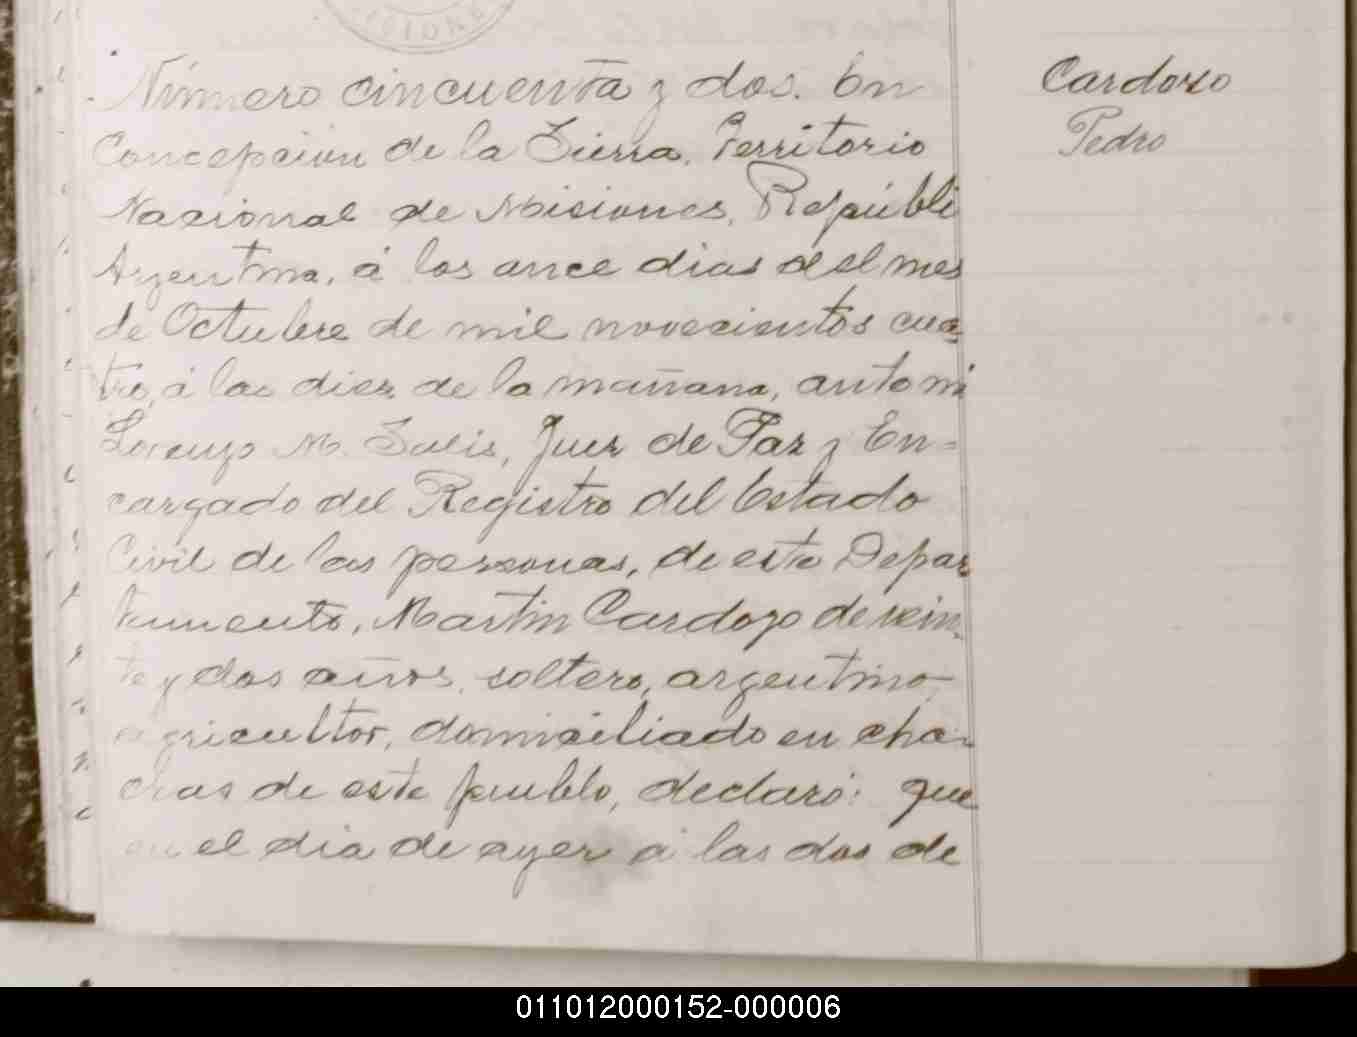 Número cincuenta y dos. En
Concepcion de la Sierra, Territorio
Nacional de Misiones, Repúbli
Argentina, á los once dias del mes
de Octubre de mil novecientos cua
tro, á las diez de la mañana, ante mi
Lorenzo M. Solis, Juez de Paz y En=
cargado del Registro del Estado
Civil de las personas, de este Depar
tamento, Martin Cardozo de vein
te y dos años, soltero, argentino,
agricultor, domiciliado en cha-
cras de este pueblo, declaró: que
en el dia de ayer á las dos de
Cardozo
Pedro
011012000152-000006